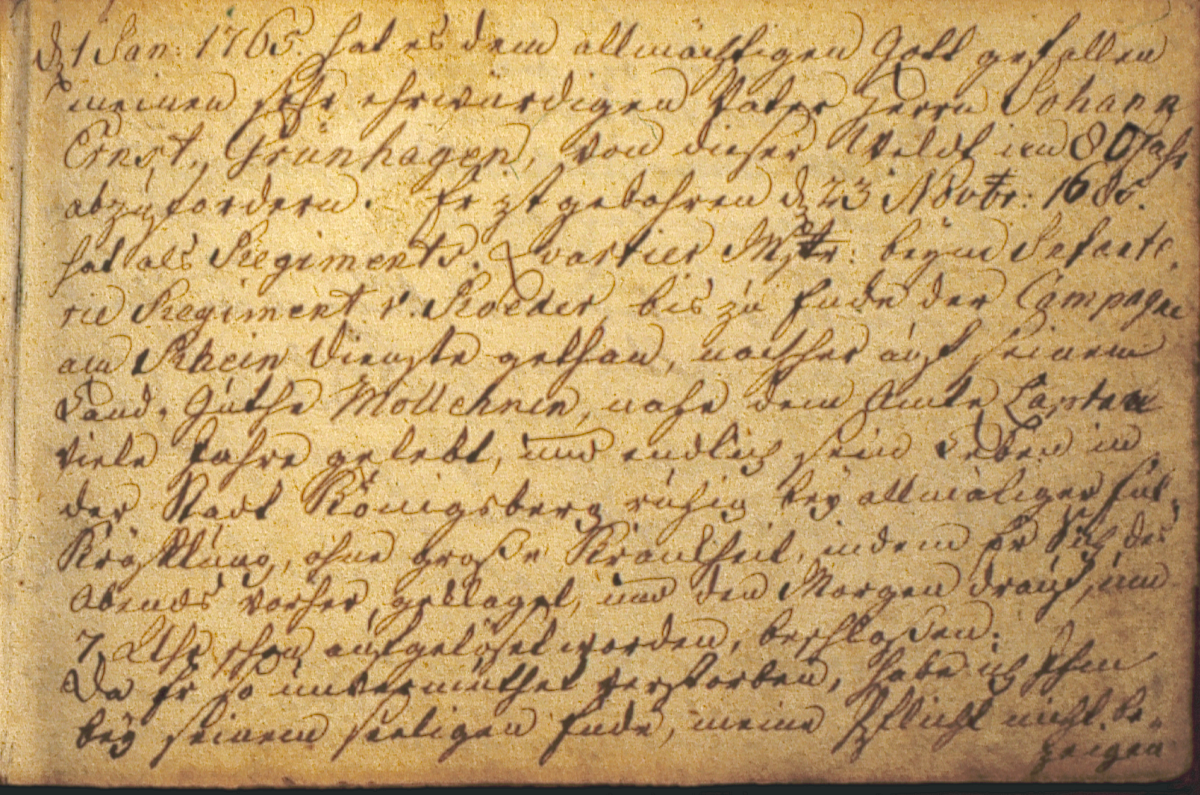 d 1 Jan: 1765. hat es dem allmächtigen Gott gefallen
meinen sehr ehrwürdigen Vater Herrn Johann
Ernst, Grünhagen, von dieser Weldt im 80 Jahr
abzufordern. Er ist gebohren d 23 Novbr: 1685.
hat als Regiments. Quartier Mstr: beym Infante,
rie Regiment v. Roeder, bis zu Ende der Campagne
am Rhein Dienste gethan, nachher auf seinem
Land, Guthe Mollehnen, nahe dem Amte
viele Jahre gelebt, und endlich sein Leben in
der Stadt Königsberg ruhig bey allmäliger Ent,
Kräfftung, ohne große Kranckheit, indem Er Sich des
Abends vorher, geklaget, und den Morgen drauf, um
7. Uhr schon aufgelöset worden, beschloßen.
Da Er so unvermuthet verstorben, habe ich Ihm
bey seinem seeligen Ende, meine Pflicht nicht be,
zeigen